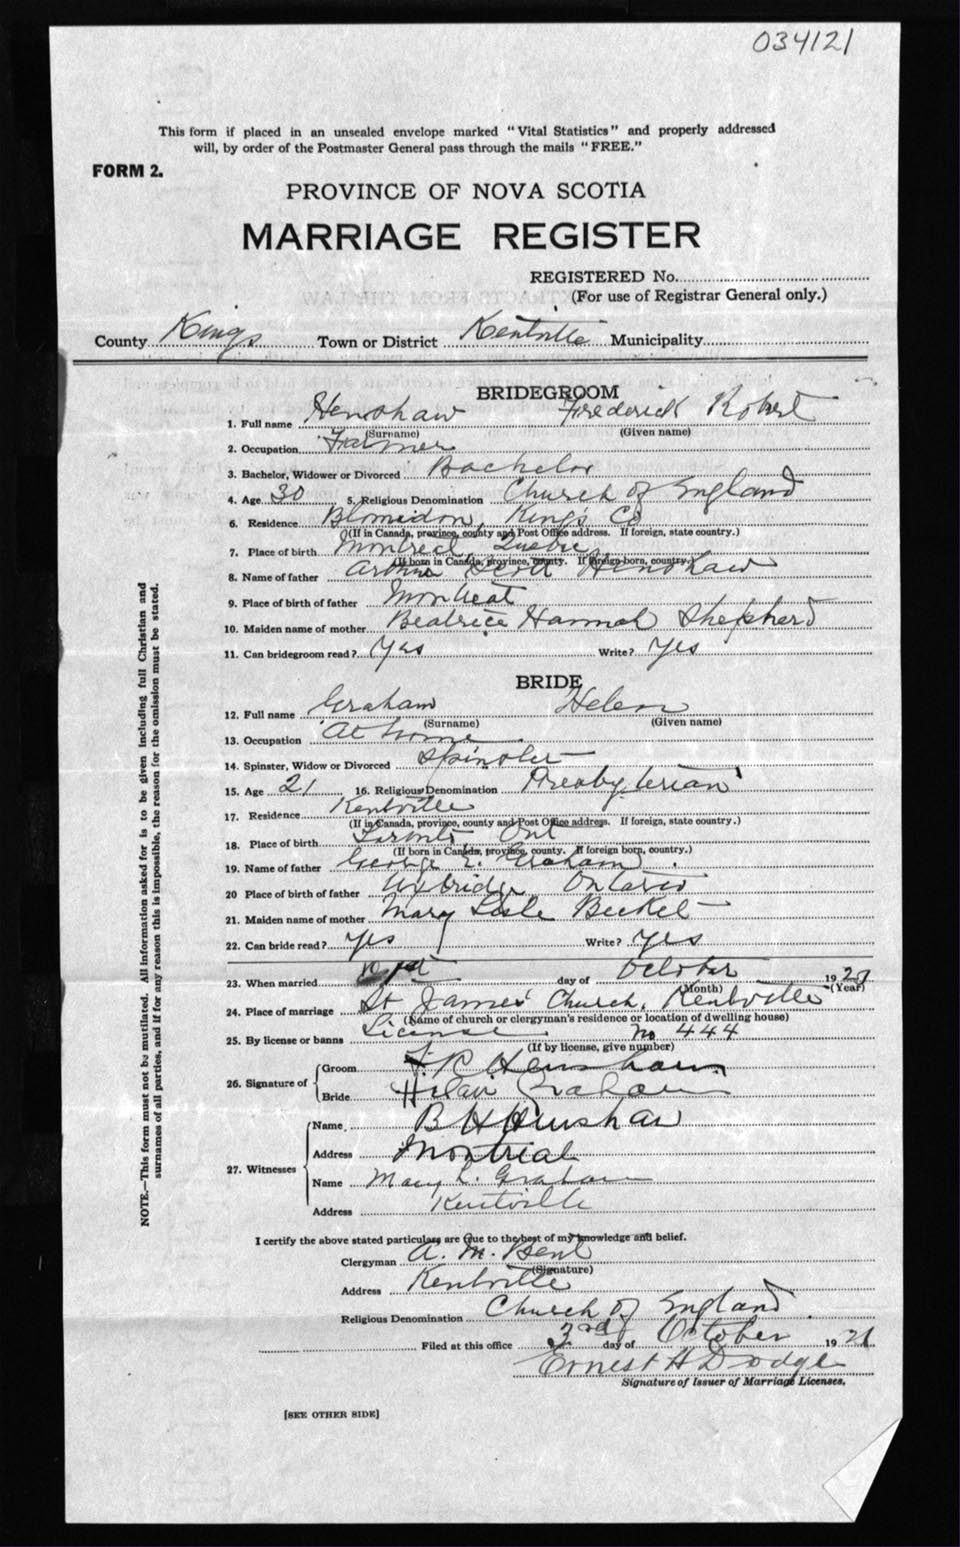 034121
This form if placed in an unsealed envelope marked "Vital Statistics" and properly addressed
will, by order of the Postmaster General pass through the mails "FREE."
FORM 2.
PROVINCE OF NOVA SCOTIA
MARRIAGE REGISTER
REGISTERED No.
(For use of Registrar General only.)
County Kings Town or District Kentville Municipality
BRIDEGROOM
1. Full name Henshaw Frederick Robert
(Surname) (Given name)
2. Occupation Farmer
3. Bachelor, Widower or Divorced Bachelor
4. Age 30 5. Religious Denomination Church of England
6. Residence Blomidon, King's Co
(If in Canada, province, county and Post Office address. If foreign, state country.)
7. Place of birth Montreal Quebec
(If born in Canada, province, county. If foreign-born, country.)
8. Name of father Arthur Scott Henshaw
9. Place of birth of father Montreal
10. Maiden name of mother Beatrice Hannah Shepherd
11. Can bridegroom read? Yes Write? Yes
BRIDE
12. Full name Graham Helen
(Surname) (Given name)
13. Occupation At home
14. Spinster, Widow or Divorced Spinster
15. Age 21 16. Religious Denomination Presbyterian
17. Residence Kentville
(If in Canada, province, county and Post Office address. If foreign, state country.)
18. Place of birth Toronto Ont
(If born in Canada, province, county. If foreign born, country.)
19. Name of father George E. Graham
20 Place of birth of father Uxbridge Ontario
21. Maiden name of mother Mary Lisle Becket
22. Can bride read? Yes Write? Yes
23. When married 1st day of October 192
(Month) (Year)
24. Place of marriage St James' Church, Kentville
(Name of church or clergyman's residence or location of dwelling house)
25. By license or banns License No 444
(If by license, give number)
26. Signature of Groom F. R Henshaw
Bride Graham
27. Witnesses Name B H Henshaw
Address Montreal
Name Mary L. Graham
Address Kentville
I certify the above stated particulars are true to the best of my knowledge and belief.
Clergyman A. M. Bent
(Signature)
Address Kentville
Religious Denomination Church of England
Filed at this office 3rd day of October 1921
Ernest H Dodge
Signature of Issuer of Marriage Licenses.
[SEE OTHER SIDE]
NOTE.—This form must not be mutilated. All information asked for is to be given including full Christian and
surnames of all parties, and if for any reason this is impossible, the reason for the omission must be stated.